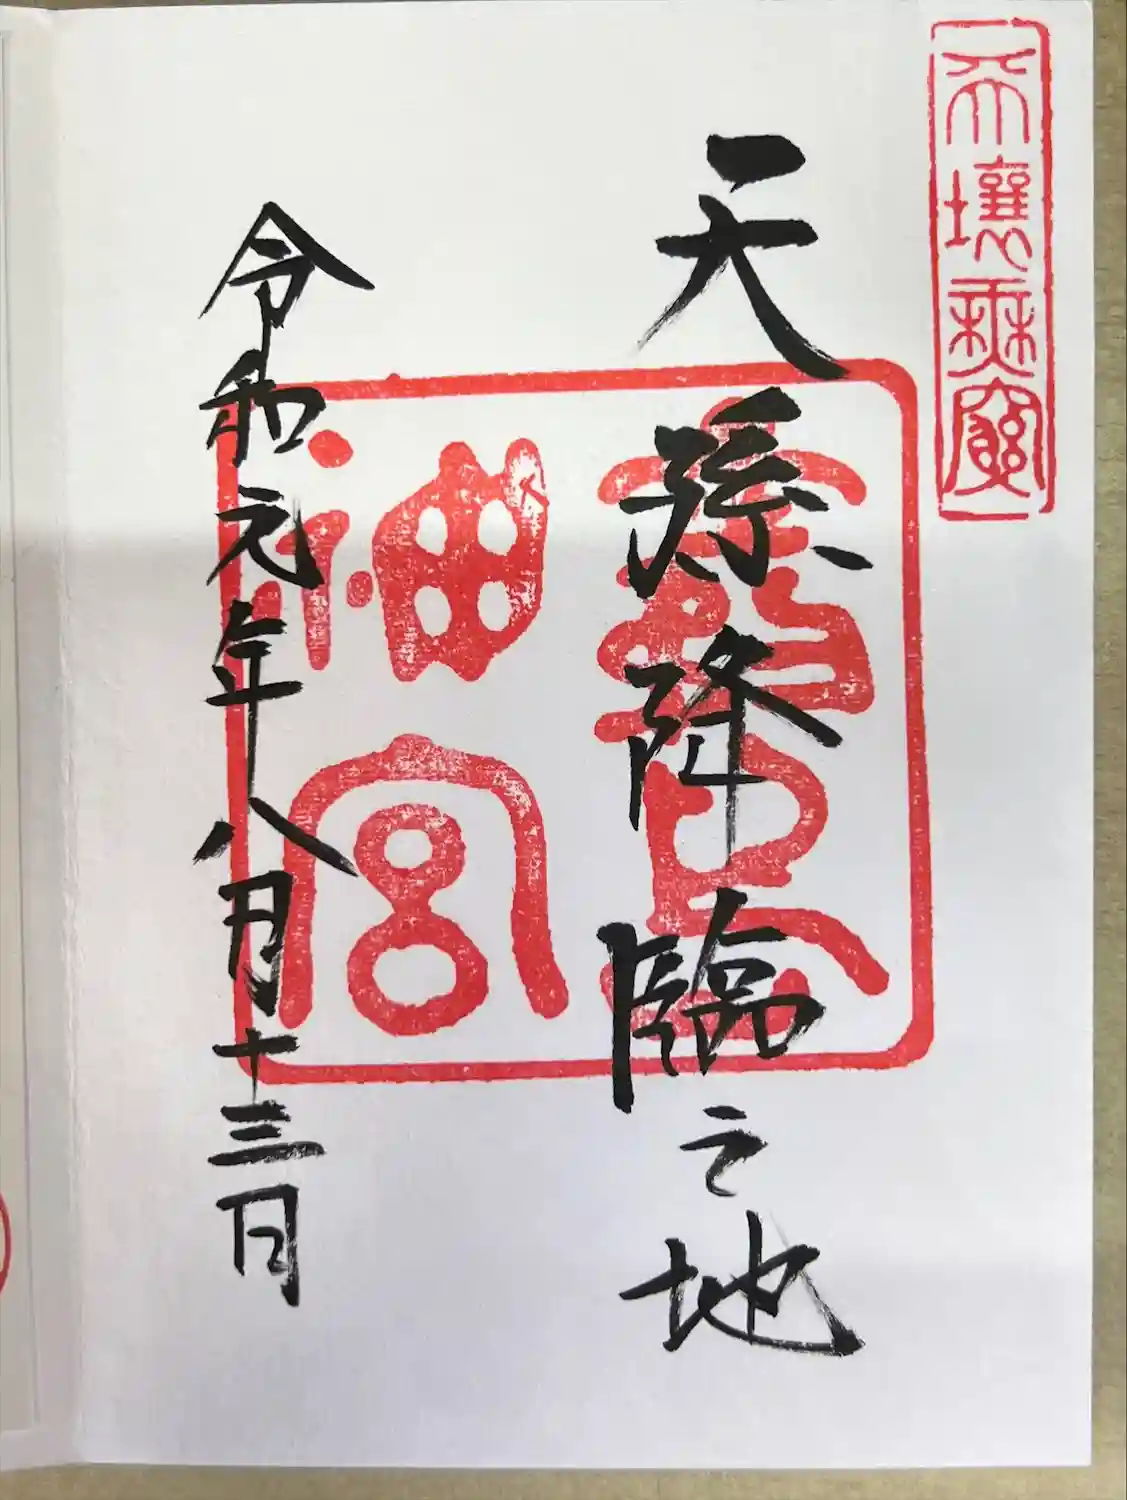 天壌無窮
天孫降臨之地
霧島
神宮
令和元年八月十三日